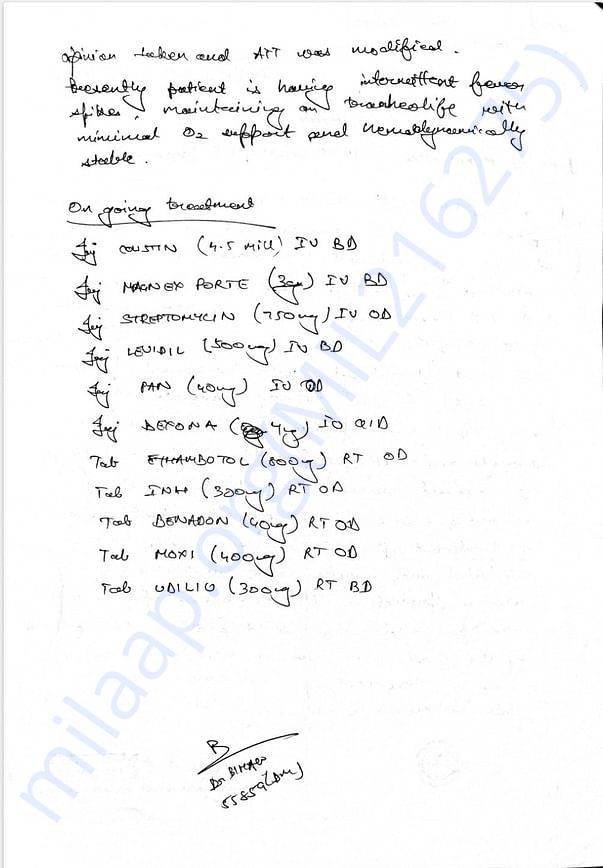 opinion taken and ATT was modified.
Presently patient is having intermittent fever
spikes, maintaining on tracheolife with
minimal O2 support and hemodynamically
stable.
On going treatment
Inj COLISTIN (4.5 Mill) IV BD
Inj MAGNEX FORTE (3gm) IV BD
Inj STREPTOMYCIN (750mg) IV OD
Inj LEVIDIL (500mg) IV BD
Inj PAN (40mg) IV OD
Inj DEXONA (4mg) IV QID
Tab ETHAMBOTOL (800mg) RT OD
Tab INH (300mg) RT OD
Tab BENADON (40mg) RT OD
Tab MOXI (400mg) RT OD
Tab UDILIV (300mg) RT BD
Dr.
55859 (DMC)
milaap.org(MIL216275)